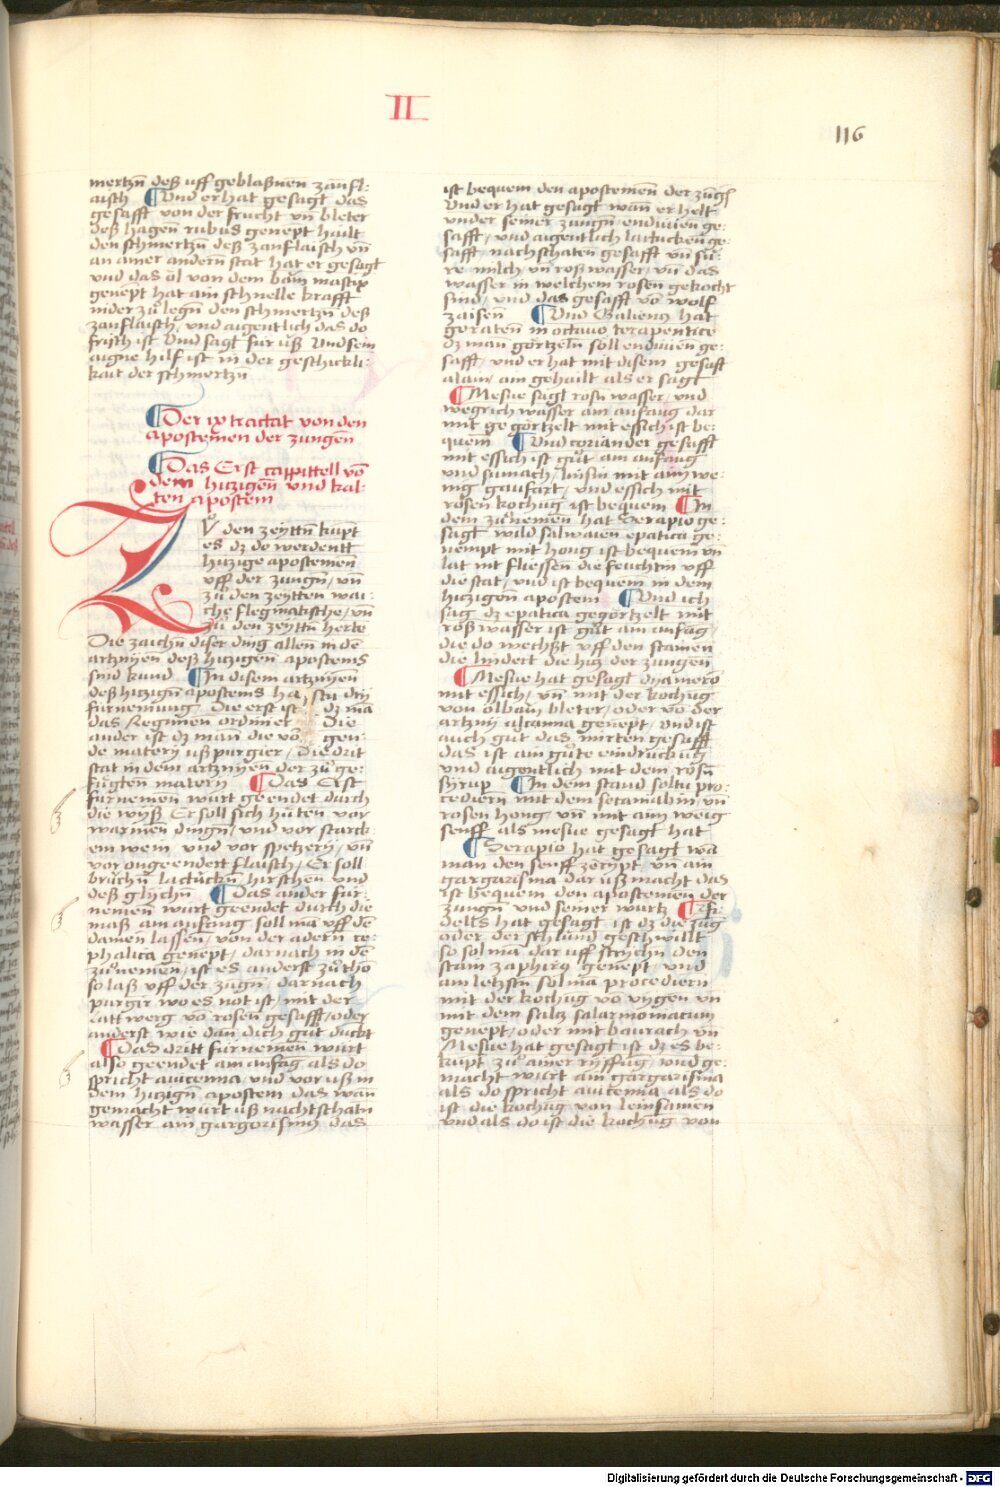 II
116
mertzñ deß uff geblaßnen zanfl:
aisch ¶ Vnd er hat gesagt das
gesafft von der frucht vñ bleter
deß hagen rubus genept hailt
den schmertzñ deß zanflaisch vñ
an ainer andern stat hat er gesagt
vnd das öl von dem bäm mastix
genēpt hat ain schnelle krafft
nider zů legñ den schmertzñ deß
zanflaisch / vnd aigentlich das do
frisch ist Vnd sagt für üß Vnd sein
aigne hilf ist in der geschickli:
kait der schmertzñ
¶ Der ix tractat von den
apostemen der zungen
¶ Das Erst cappittell vō
dem hitzigen vnd kal-
ten apostem
Zů den zeyttñ kūpt
es dz do werdentt
hitzige apostemen
vff der zungñ / vñ
zů den zeytten wai:
che flegmatische / vñ
zu den zeyttñ herte
Die zaichñ diser ding allen in dē
artznyen deß hitzigen apostems
sind kund ¶ In disem artznyen
deß hitzigñ apostems ha stu dry
fürnemung / Die erst ist dz mā
das Regimen ordiniet Die
ander ist dz man die vō gen:
de matery uß purgier / Die drit
stat in dem artznyen der zů ge:
fügten matery ¶ Das Erst
fürnemen würt geendet durch
die wyß Er soll sich hüten vor
warmen dingñ / vnd vor starck
em wein vnd vor spetzery / vñ
vor ongeendert flaisch / Er soll
bruchñ lactückñ / hirschen vnd
deß glychñ ¶ Das ander für:
nemen würt geendet durch die
maß am anfāng soll mā vff dē
damen lassen / von der adern ce:
phalica genēpt / darnach in dē
zů nemen / ist es anderst zů thō
so laß vff der zūgñ / darnach
purgir wo es not ist / mit der
lattwerg vō rosen gesafft / oder
anderst wie dan dich gůt duckt
¶ Das dritt fürnemen würt
also geendet am anfāg als do
spricht auicenna vnd vor uß in
dem hitzigñ apostem das wan
gemacht würt uß nachtschatñ
wasser ain gargarismꝰ das
ist bequem den apostemen der zūgñ
Vnd er hat gesagt wan er helt
vnder seiner zungñ / endiuien ge:
safft / vnd aigentlich lattucken ge:
safft / nachschaten gesafft vñ sü:
re milch / vñ roß wasser / vñ das
wasser in welchem rosen gekocht
sind / vnd das gesafft vō wolf
zaisen ¶ Vnd Galienꝰ hat
geraten in octauo terapentice
dz man görtzeln soll endiuien ge:
safft / vnd er hat mit disem gesaft
alain / ain gehailt als er sagt
¶ Mesue sagt rosñ wasser / vnd
wegrich wasser am anfang dar
mit ge görtzelt mit essich ist be:
quem ¶ Vnd coriander gesafft
mit essich ist gůt am anfang
vnd sumach / lynsin mit aim we:
nig gaufart / vnd essich mit
rosen kochūg ist bequem ¶ In
dem zů nemen hat Serapio ge:
sagt wild salwaien epatica ge:
nempt mit hong ist bequem vñ
lat nit fliessen die feuchtin vff
die stat / vnd ist bequem in dem
hitzigen apostem ¶ Vnd ich
sag dz epatica gegörtzelt mit
roß wasser ist gůt am anfāg /
die do wechßt vff den stainen
die lindert die hitz der zungen
¶ Mesue hat gesagt dyamero
mit essich / vñ mit der kochūg
von ölbäm bleter / oder vō der
artzny alcanna genēpt / vnd ist
auch gůt das mirten gesafft
das ist ain gůte eindruckūg
vnd aigentlich mit dem rosñ
syrup ¶ In dem stand soltu pro:
cediern mit dem sctamabin vñ
rosen hong / vñ mit aim wenig
senff als mesue gesagt hat
¶ Serapio hat gesagt wā
man den senff zerrypt vñ ain
gargarisma dar uß macht das
ist bequem den apostemen der
zungñ vnd seiner wurtz
dells hat gesagt ist dz die zūg
oder der schlund geschwillt
so sol mā dar uff strychñ den
stain zaphirꝰ genēpt / vnd
am letzstñ sol mā procediern
mit der kochūg vō vygen vñ
mit dem saltz salarmoniacum
genēpt / oder mit baurach vñ
Mesue hat gesagt ist dz es be:
kupt zů ainer ryffūg / vnd ge:
macht würt ain gargarisma
als do spricht auicenna als do
ist die kochūg von leinsamen
vnd als do ist die kochūg von
Digitalisierung gefördert durch die Deutsche Forschungsgemeinschaft - DFG